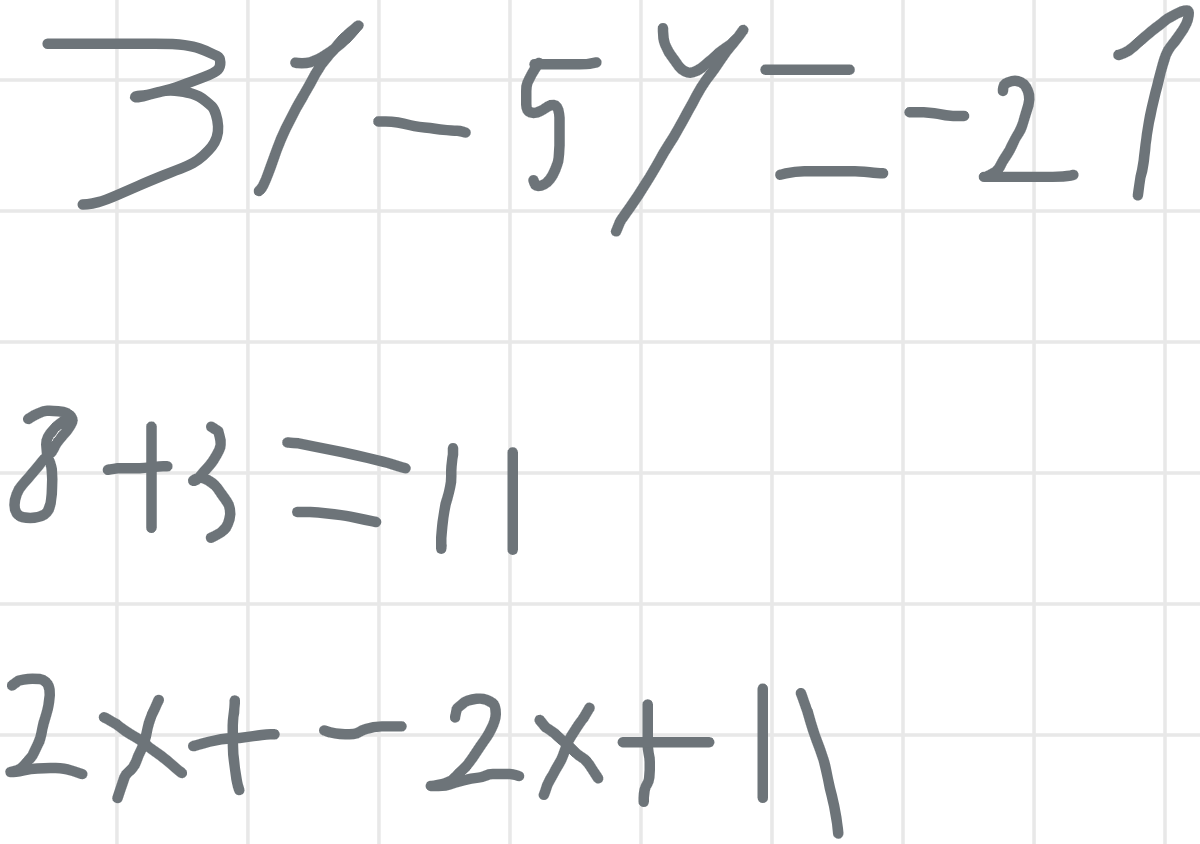 3y - 5y = -2y
8 + 3 = 11
2x + - 2x + 11